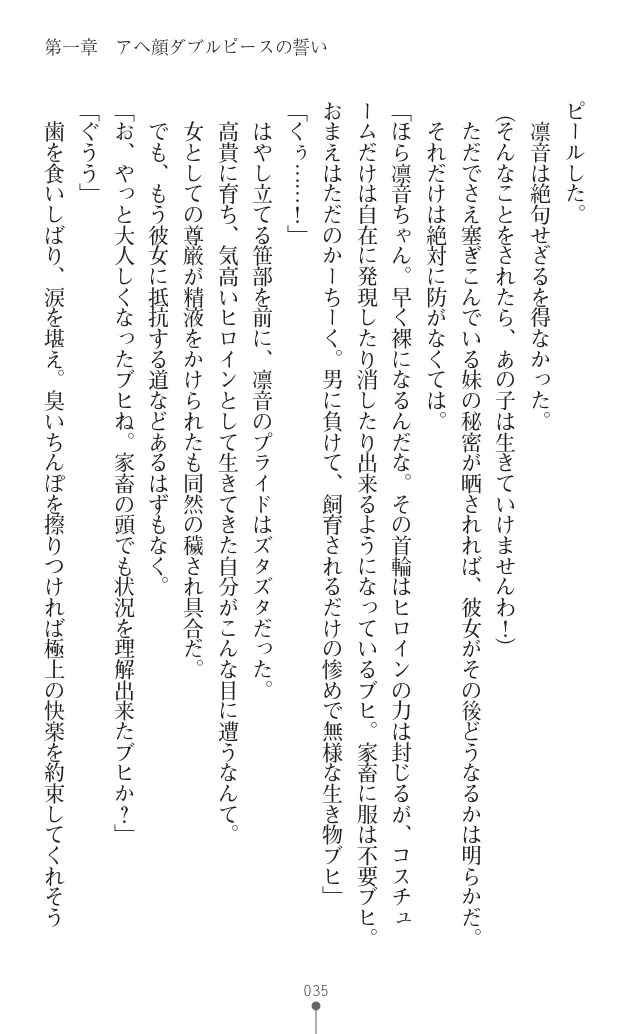 第一章　アヘ顔ダブルピースの誓い
ピールした。
凛音は絶句せざるを得なかった。
（そんなことをされたら、あの子は生きていけませんわ！）
ただでさえ塞ぎこんでいる妹の秘密が晒されれば、彼女がその後どうなるかは明らかだ。
それだけは絶対に防がなくては。
「ほら凛音ちゃん。早く裸になるんだな。その首輪はヒロインの力は封じるが、コスチュ
ームだけは自在に発現したり消したり出来るようになっているブヒ。家畜に服は不要ブヒ。
おまえはただのかーちーく。男に負けて、飼育されるだけの惨めで無様な生き物ブヒ」
「くぅ……！」
はやし立てる笹部を前に、凛音のプライドはズタズタだった。
高貴に育ち、気高いヒロインとして生きてきた自分がこんな目に遭うなんて。
女としての尊厳が精液をかけられたも同然の穢され具合だ。
でも、もう彼女に抵抗する道などあるはずもなく。
「お、やっと大人しくなったブヒね。家畜の頭でも状況を理解出来たブヒか？」
「ぐうう」
歯を食いしばり、涙を堪え。臭いちんぽを擦りつければ極上の快楽を約束してくれそう
035